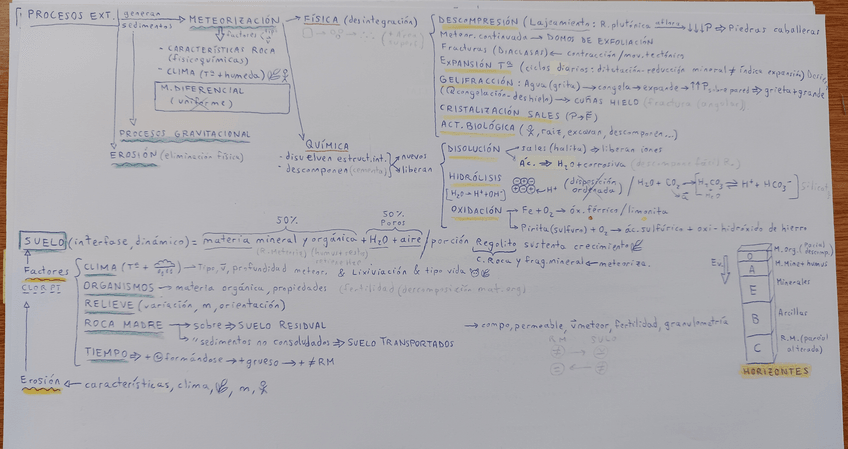 PROCESOS EXT. generan METEORIZACIÓN
sedimental
factores
- CARACTERÍSTICAS ROCA
(fisicoquímicas)
- CLIMA (Tª + humeda)
M. DIFERENCIAL
(uniforme)
PROCESOS GRAVITACIONAL
EROSIÓN (eliminación física)
FÍSICA (desintegración)
DESCOMPRESIÓN (Lajeamiento: R. plutónica aflora ↓↓↓P → Piedras caballeras
Meteor. continuada → DOMOS DE EXFOLIACIÓN
Fracturas (DIACLASAS) ← contracción/mov. tectónico
EXPANSIÓN Tª (ciclos diarios: dilatación-reducción mineral ≠ índice expansión)
GELIFRACCIÓN: Agua (grita) → congela → expande → ↑↑P sobre pared → grieta + grande
(Q congelación-deshielo) → CUÑAS HIELO (fractura angular)
CRISTALIZACIÓN SALES (P→E)
ACT. BIOLÓGICA (raíz, excavan, descomponen...)
QUÍMICA
- disuelven estruct. int.
- descomponen (cementa)
nuevos
liberan
DISOLUCIÓN
sales (halita) ⇒ liberan iones
Ác. ⇒ H2O + corrosiva
HIDRÓLISIS
[H2O → H+ + OH-]
H+ (disposición ordenada) / H2O + CO2 → [H2CO3 ⇌ H+ + HCO3-]
OXIDACIÓN
Fe + O2 → óx. férrico / limonita
Pirita (sulfuro) + O2 → ác. sulfúrico + oxi-hidróxido de hierro
50%
50%
Poros
SUELO (interfase, dinámico) = materia mineral y orgánica + H2O + aire / porción Regolito sustenta crecimiento
C. Roca y frag. mineral ← meteoriza.
Factores
CLOR PT
CLIMA (Tª + ) → Tipo, v, profundidad meteor. & Lixiviación & tipo vida
ORGANISMOS → materia orgánica, propiedades (fertilidad (descomposición mat. org)
RELIEVE (variación, m, orientación)
ROCA MADRE
sobre ⇒ SUELO RESIDUAL
" sedimentos no consolidados ⇒ SUELO TRANSPORTADOS
→ compo, permeable, v meteor, fertilidad, granulometría
RM SUELO
TIEMPO → + formándose → + grueso → + ≠ RM
Erosión ← características, clima, , m,
Ev.
O
A
E
B
C
M. Org. (parcial descomp.)
M. Min + humus
Minerales
Arcillas
R.M. (parcial alterado)
HORIZONTES